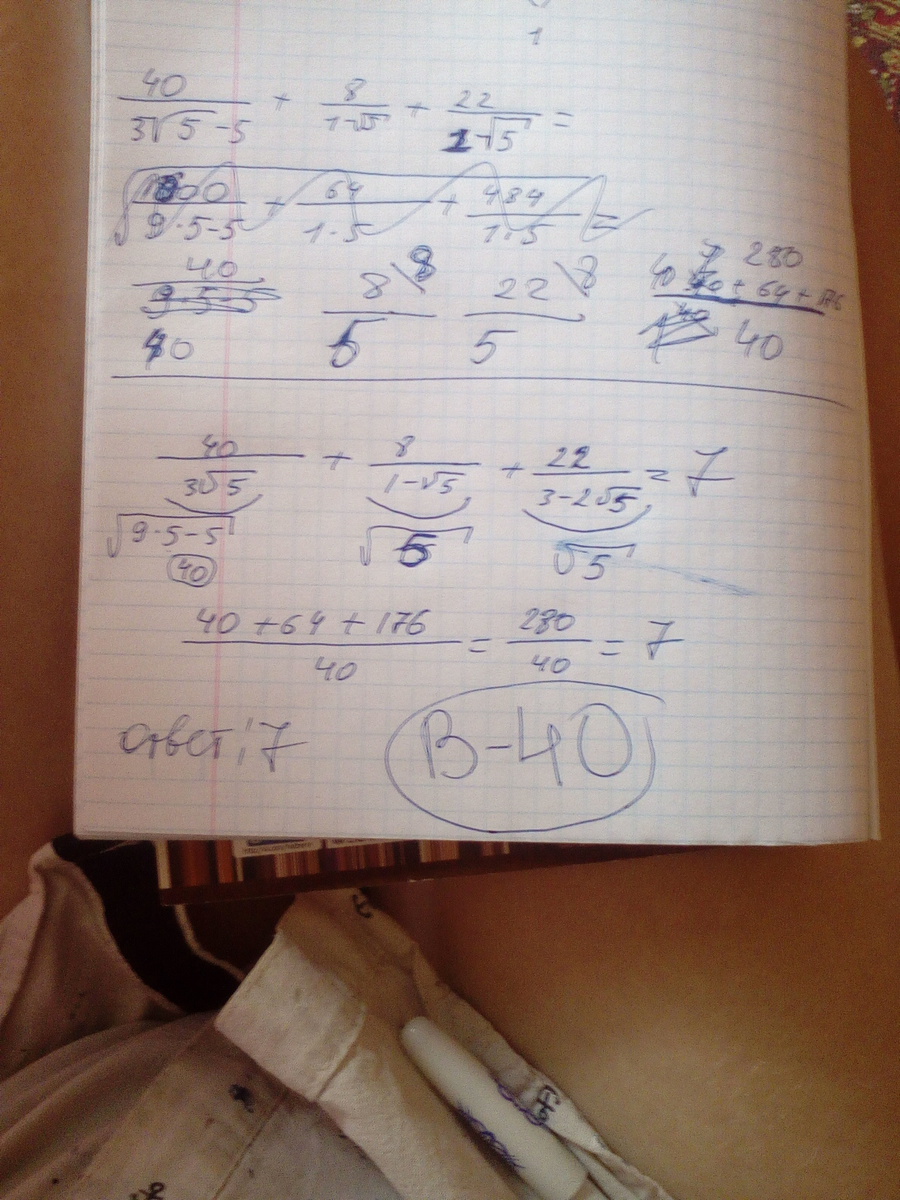 1
40/(3√5-5) + 8/(1-√5) + 22/(1-√5) =
00/(9·5-5) + 64/(1·5) + 484/(1·5) =
40/(9·5-5) 8\8 22\8 7 280
40 5 5 40 + 64 + 176
40
40/(3√5) + 8/(1-√5) + 22/(3-2√5) = 7
√(9·5-5) √5 √5
40
(40+64+176)/40 = 280/40 = 7
ответ: 7 В-40